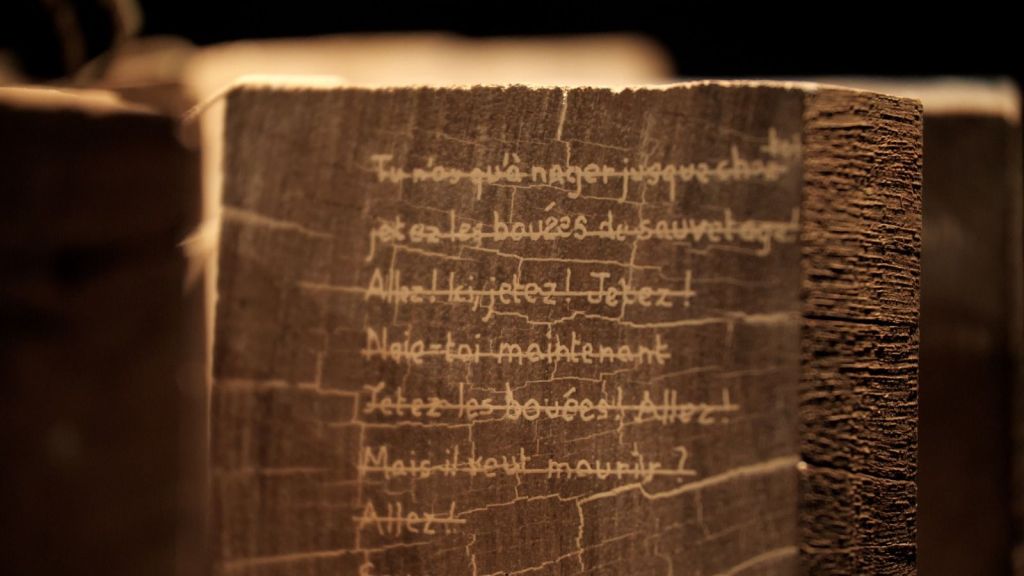 Tu n'as qu'à nager jusque chez toi
jetez les bouées de sauvetage!
Allez! jetez! Jetez!
Noie-toi maintenant
Jetez les bouées! Allez!
Mais il veut mourir?
Allez!